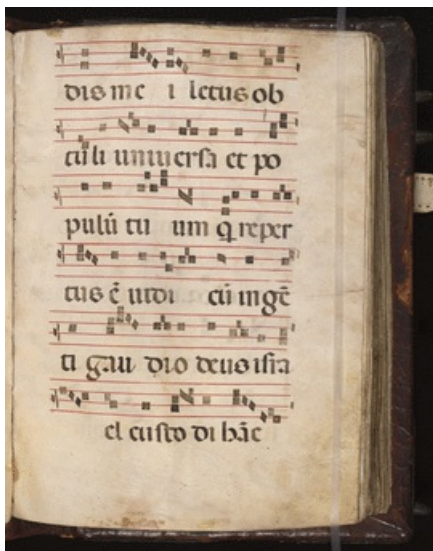 dis me i letus ob
tu li uniuersa et po
pulū tu um q̄ reper
tus ē uidi cū ingē
ti gau dio deus isra
el custo di hāc